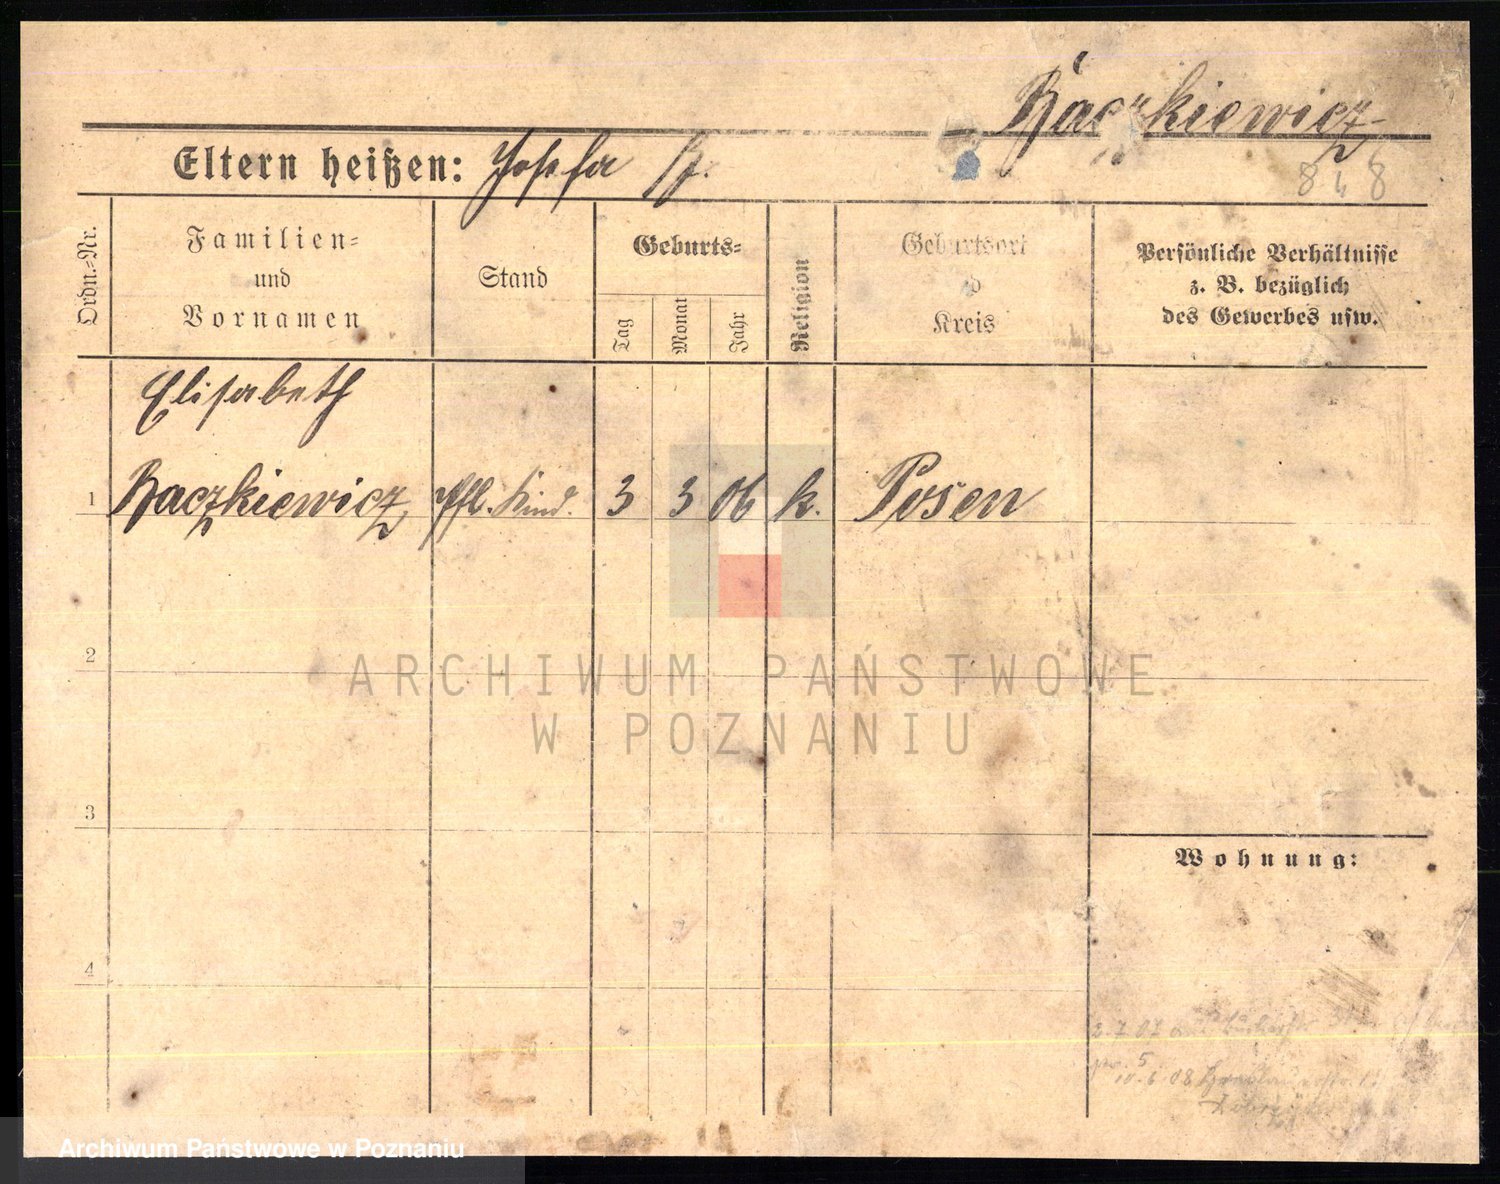 Raczkiewicz
Eltern heißen: Josefa R.
848
Ordn.-Nr.
Familien-
und
Vornamen
Stand
Geburts-
Tag
Monat
Jahr
Religion
Geburtsort
Kreis
Persönliche Verhältnisse
z. B. bezüglich
des Gewerbes usw.
Elisabeth
1 Raczkiewicz Pfl. Kind. 3 3 06 k. Posen
2
ARCHIWUM PAŃSTWOWE
W POZNANIU
3
Wohnung:
4
2.7.07
10.6.08
Archiwum Państwowe w Poznaniu